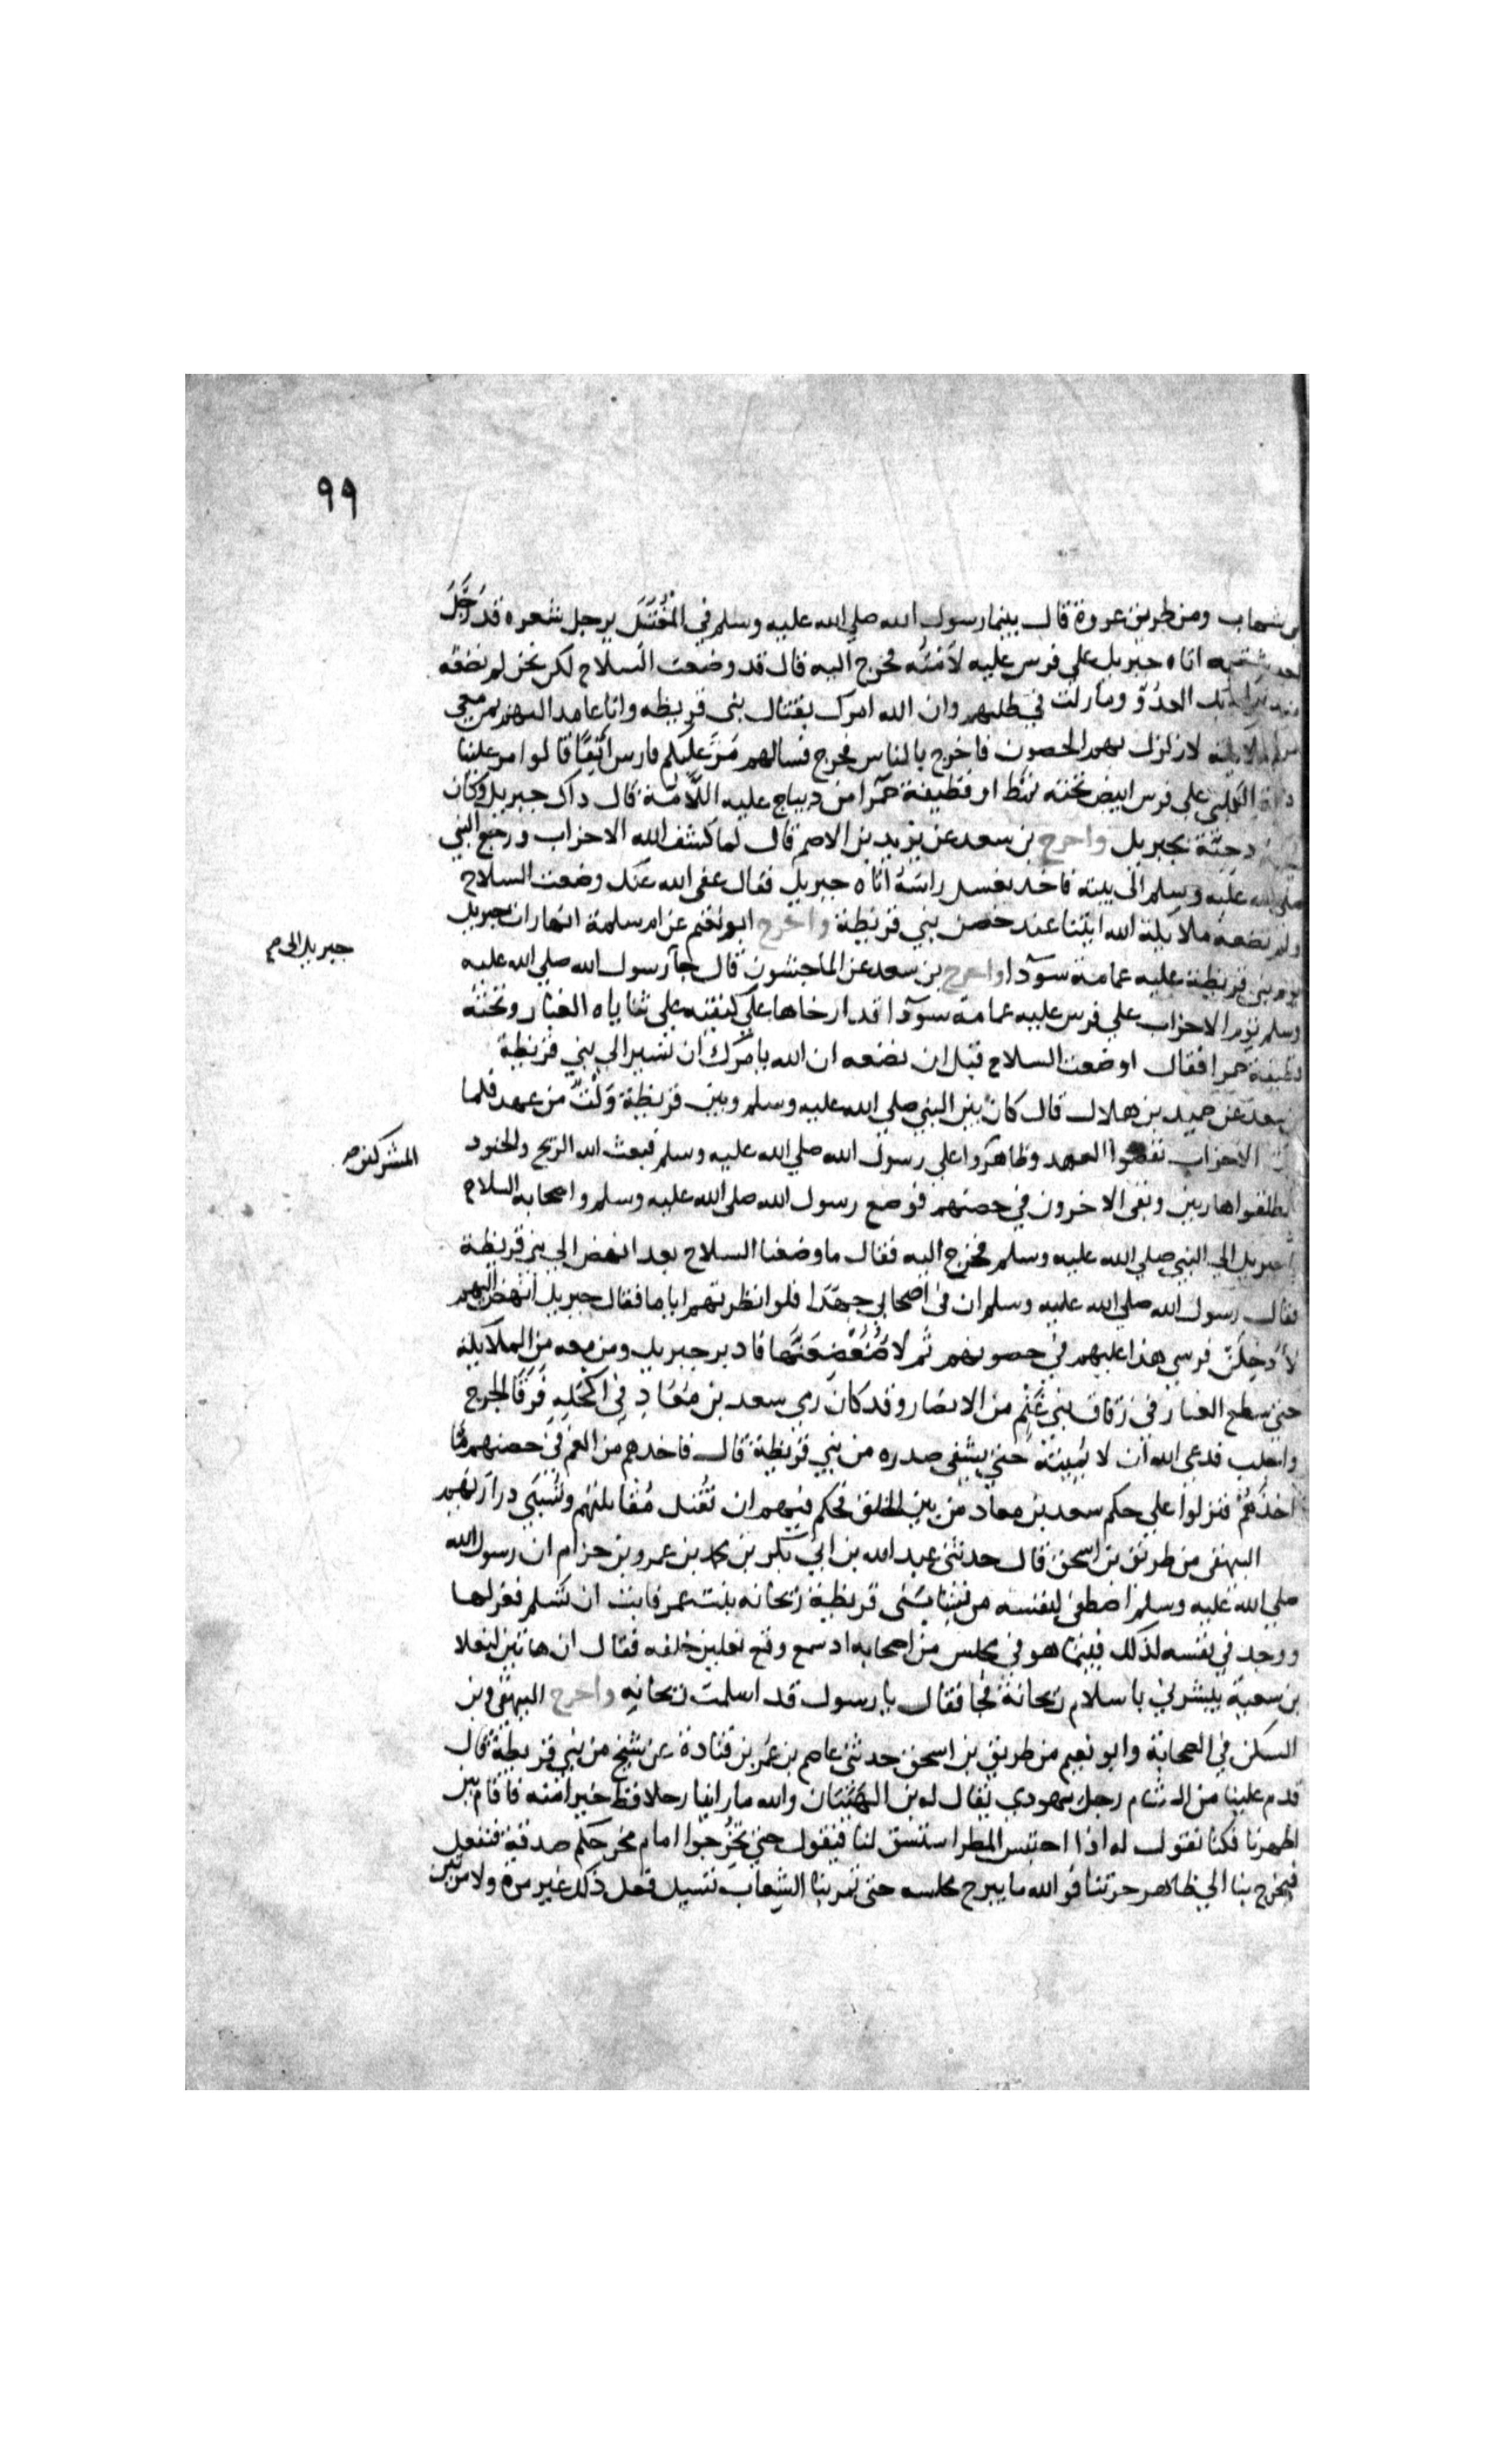 ٩٩
شهاب ومن طريق عروة قال بينما رسول الله صلي الله عليه وسلم في المغتسل يرجل شعره قد رجل
اتاه جبريل علي فرس عليه لامته فخرج اليه قال قد وضعت السلاح لكن نحن لم نضعه
بك العدو ومازلت في طلبهم وان الله امرك بقتال بني قريظه وانا عامد اليهم بمن معي
لازلزل بهم الحصون فاخرج بالناس فخرج فسالهم مر عليكم فارس انفا قالوا مر علينا
الكلبي علي فرس ابيض تحته نمط او قطيفة حمرا من ديباج عليه اللامة قال ذاك جبريل وكان
دحية بجبريل واخرج بن سعد عن يزيد بن الاصم قال لما كشف الله الاحزاب ورجع النبي
صلي الله عليه وسلم الي بيته فاخذ يغسل راسه اتاه جبريل فقال عفي الله عنك وضعت السلاح
ولم تضعه ملايكة الله ايتنا عند حصن بني قريظة واخرج ابو نعيم عن ام سلمة انها رات جبريل
يوم بني قريظة عليه عمامة سودا واخرج بن سعد عن الماجشون قال جا رسول الله صلي الله عليه
جبريل الي صح
وسلم يوم الاحزاب علي فرس عليه عمامة سودا قد ارخاها علي كتفيه علي ثناياه الغبار وتحته
قطيفة حمرا فقال اوضعت السلاح قبل ان نضعه ان الله يامرك ان تسير الي بني قريظة
سعد عن حميد بن هلال قال كان بين النبي صلي الله عليه وسلم وبين قريظة ولث من عهد فلما
الاحزاب نقضوا العهد وظاهروا علي رسول الله صلي الله عليه وسلم فبعث الله الريح والجنود
المشركين صح
انطلقوا هاربين وبقي الاخرون في حصنهم فوضع رسول الله صلي الله عليه وسلم واصحابه السلاح
جبريل الي النبي صلي الله عليه وسلم فخرج اليه فقال ما وضعنا السلاح بعد انهض الي بني قريظة
فقال رسول الله صلي الله عليه وسلم ان في اصحابي جهدا فلو انظرتهم اياما فقال جبريل انهض اليهم
لأدخلن فرسي هذا عليهم في حصونهم ثم لاضعضعنها فادبر جبريل ومن معه من الملايكة
حتي سطع الغبار في زقاق بني غنم من الانصار وقد كان رمي سعد بن معاذ في اكحله فرقا الجرح
واجلب فدعي الله ان لا يميته حتي يشفي صدره من بني قريظة قال فاخذهم من الغم في حصنهم ما
اخذهم فنزلوا علي حكم سعد بن معاد من بين الخلق فحكم فيهم ان تقتل مقاتلتهم وتسبي دراريهم
البيهقي من طريق بن اسحق قال حدثني عبد الله بن ابي بكر بن محمد بن عمرو بن حزام ان رسول الله
صلي الله عليه وسلم اصطفي لنفسه من سبي قريظة ريحانه بنت عمر فابت ان تسلم فعزلها
ووجد في نفسه لذلك فبينما هو في مجلس من اصحابه اد سمع وقع نعلين خلفه فقال ان هاتين لنعلا
بن سعية يبشرني باسلام ريحانة فجا فقال يا رسول قد اسلمت ريحانه واخرج البيهقي وبن
السكن في الصحابة وابو نعيم من طريق بن اسحق حدثني عاصم بن عمر بن قتادة عن شيخ من بني قريظة قال
قدم علينا من الشام رجل يهودي يقال له بن الهيبان والله ما راينا رجلا قط خيرا منه فاقام بين
اظهرنا فكنا نقول له اذا احتبس المطر استسق لنا فيقول حتي تخرجوا امام مخرجكم صدقة فنفعل
فيخرج بنا الي ظاهر حرتنا فو الله ما يبرح مجلسه حتي تمر بنا الشعاب تسيل فعل ذلك غير مرة ولا مرتين